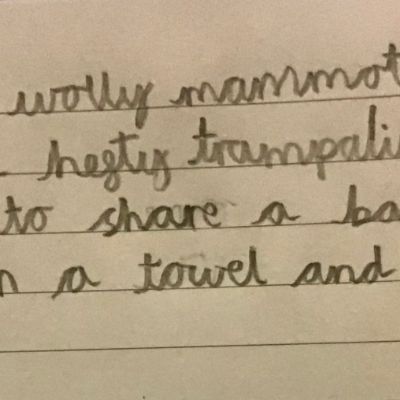 wolly mammot
hegty trampali
to share a ba
n a towel and